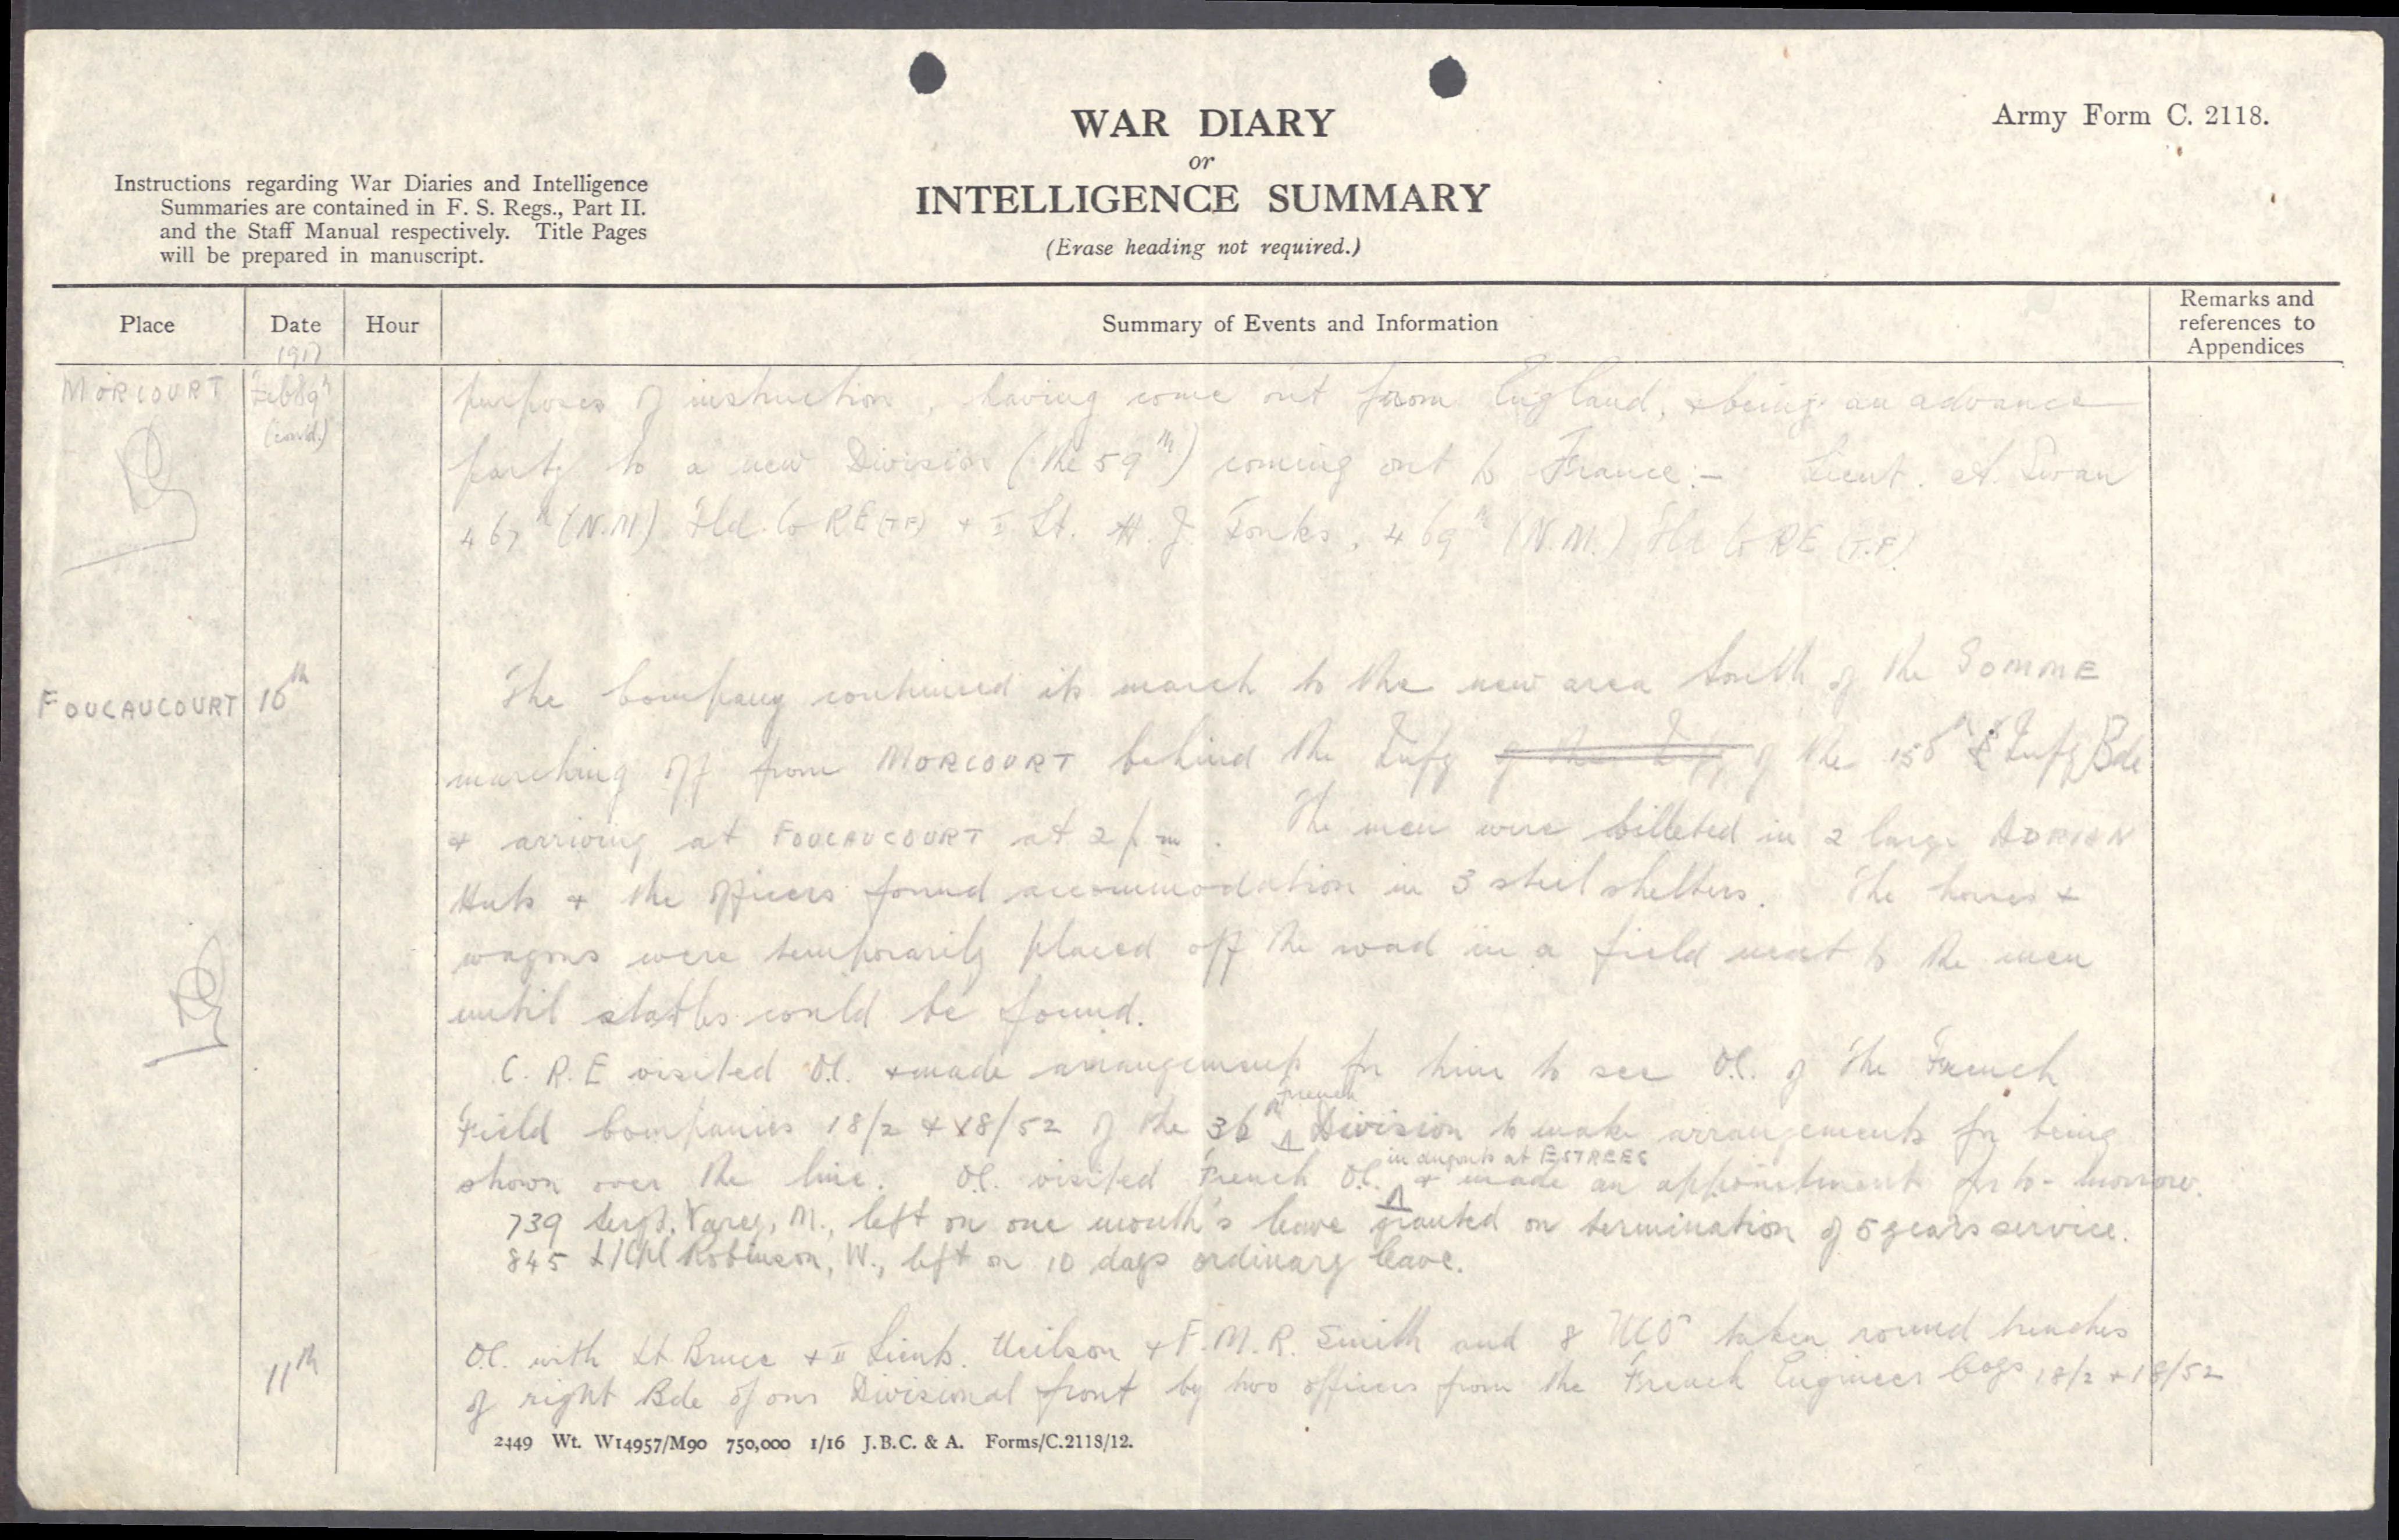 Army Form C. 2118.
WAR DIARY
or
INTELLIGENCE SUMMARY
(Erase heading not required.)
Instructions regarding War Diaries and Intelligence
Summaries are contained in F. S. Regs., Part II.
and the Staff Manual respectively. Title Pages
will be prepared in manuscript.
Place Date Hour Summary of Events and Information Remarks and references to Appendices
1917
MORCOURT Feb 9th (contd.) purposes of instruction, having come out from England, & being an advance
party to a new Division (the 59th) coming out to France:- Lieut. A. Swan
467th (N.M.) Fld. Co RE (TF) & II Lt. H. J. Tonks, 469th (N.M.) Fld Co RE (T.F)
FOUCAUCOURT 10th The Company continued its march to the new area South of the SOMME
marching off from MORCOURT behind the Infy of the Infy of the 150th Infy Bde
& arriving at FOUCAUCOURT at 2 pm. The men were billeted in 2 large ADRIAN
Huts & the officers found accommodation in 3 steel shelters. The horses &
wagons were temporarily placed off the road in a field next to the men
until stables could be found.
C.R.E visited O.C. & made arrangements for him to see O.C. of the French
Field Companies 18/2 & 18/52 of the 36th French Division to make arrangements for being
shown over the line. O.C. visited French O.C. in dugouts at ESTREES & made an appointment for to-morrow.
739 Sergt. Varey, M., left on one month's leave granted on termination of 5 years service.
845 L/Cpl Robinson, W., left on 10 days ordinary leave.
11th O.C. with Lt. Bruce & II Lieuts. Neilson & F.M.R. Smith and 8 NCOs taken round trenches
of right Bde of our Divisional front by two officers from the French Engineer Coys 18/2 & 18/52
2449 Wt. W14957/M90 750,000 1/16 J.B.C. & A. Forms/C.2118/12.